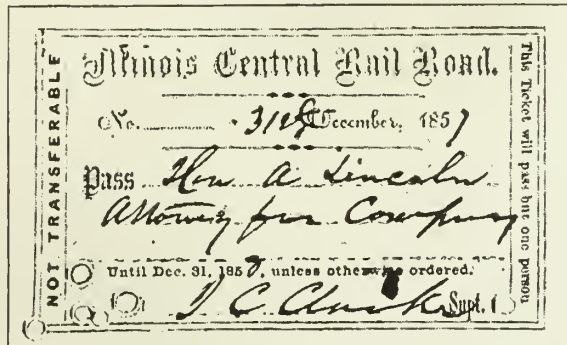 NOT TRANSFERABLE
Illinois Central Rail Road.
No. December, 1857
Pass Hon A Lincoln
Attorney for Company
Until Dec. 31, 185 , unless otherwise ordered.
Supt.
This Ticket will pass but one person